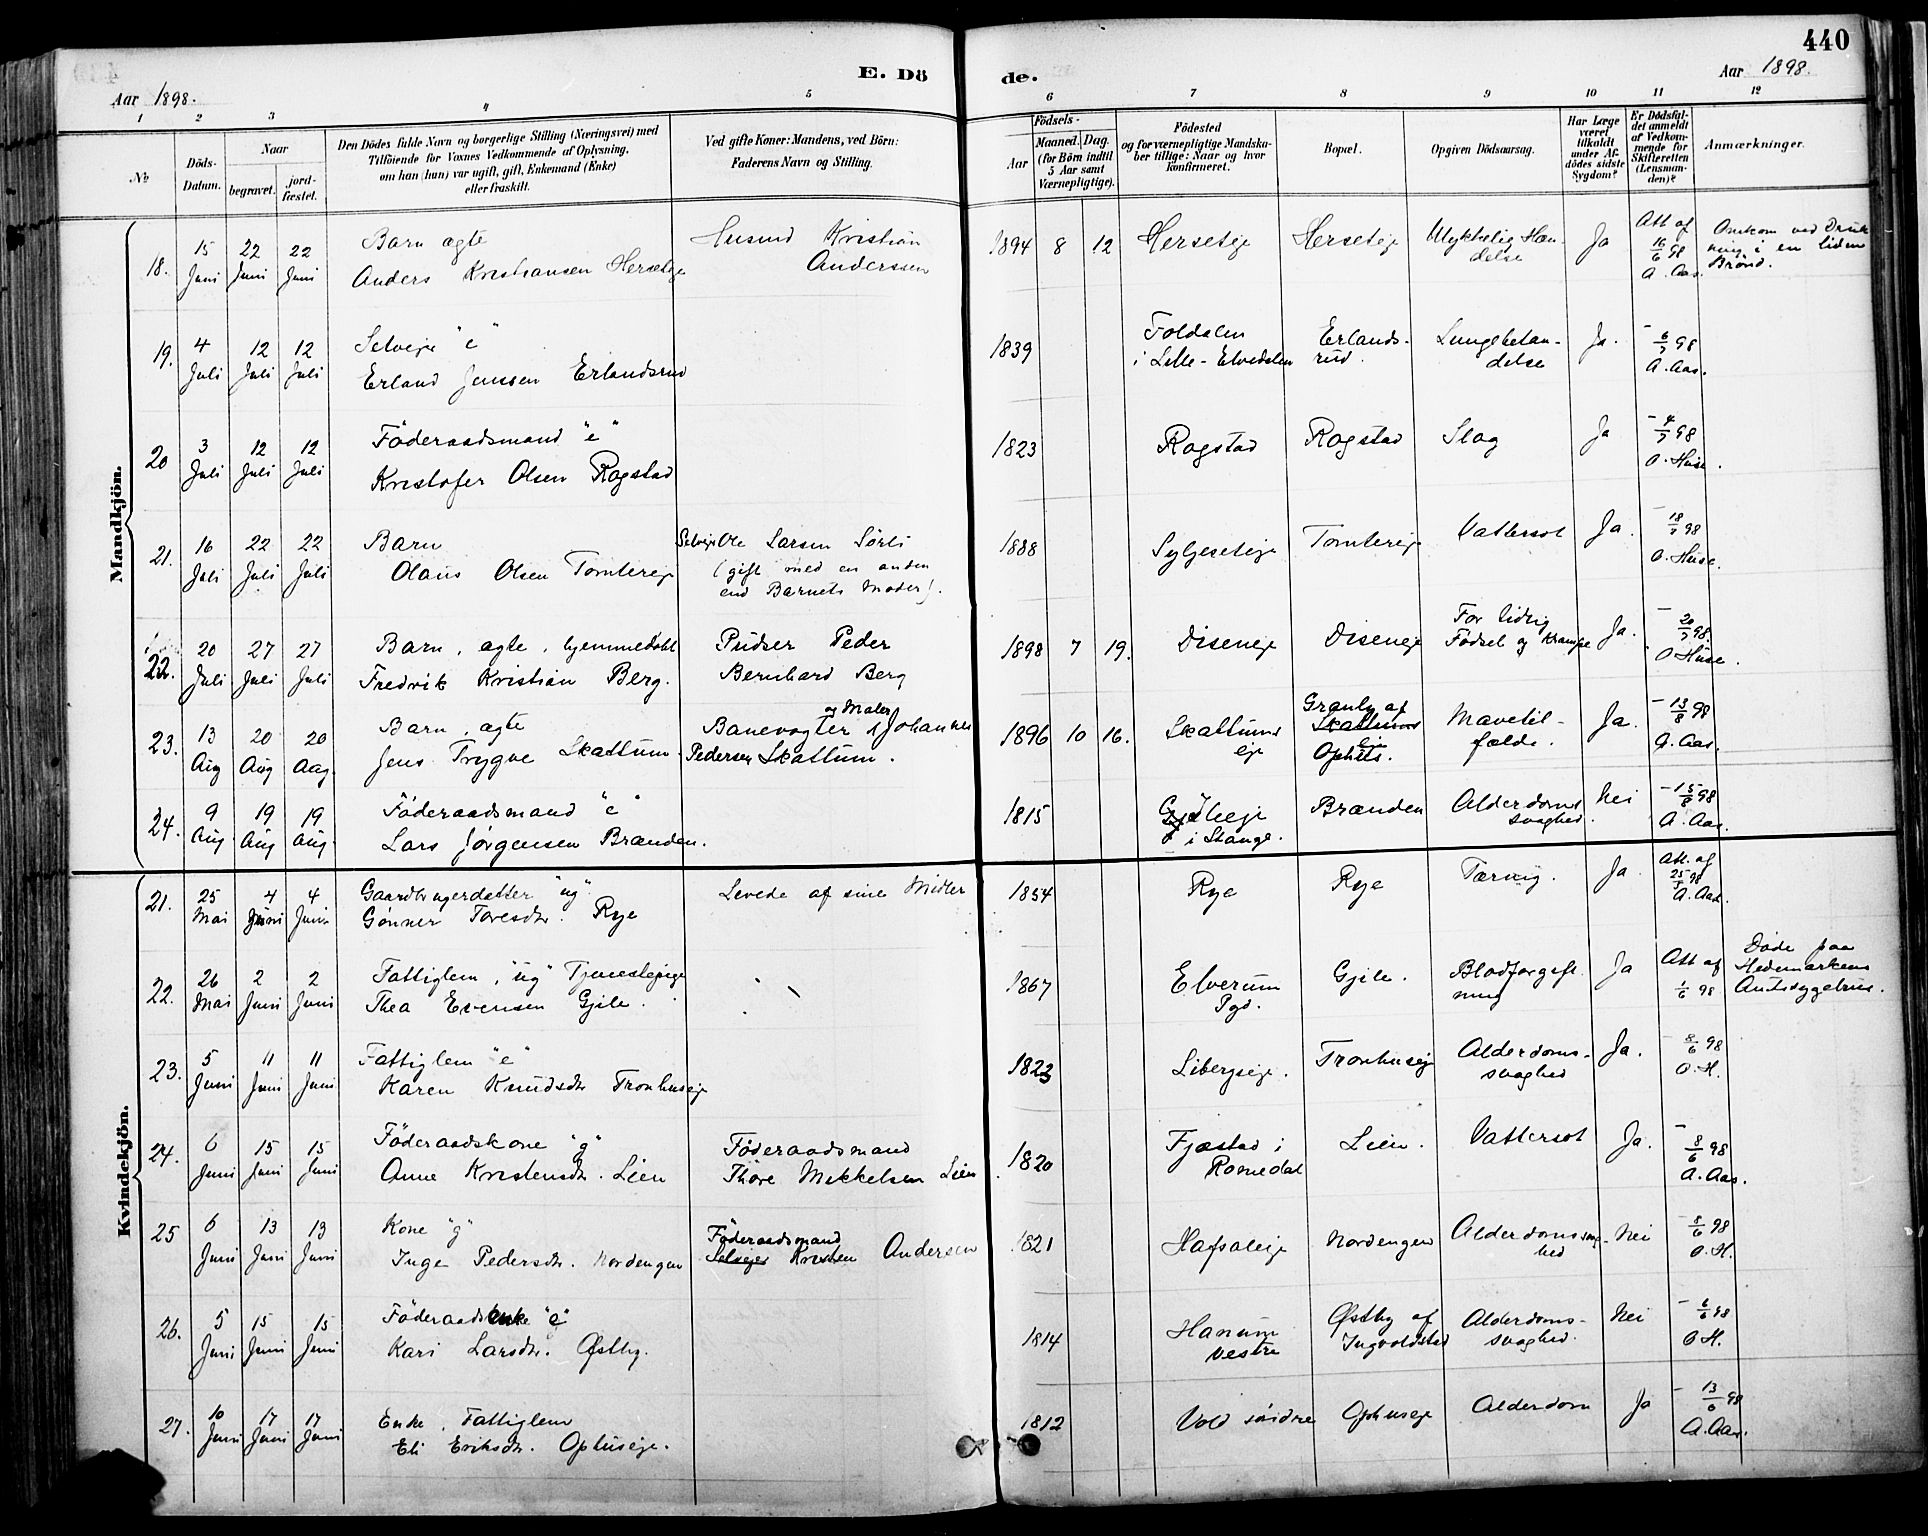 440
E. Dö
de.
Aar 1898.
Aar 1898.
1 2 3 4 5 6 7 8 9 10 11 12
No
Döds-
Datum.
Naar
begravet.
jord-
fæstet.
Den Dödes fulde Navn og borgerlige Stilling (Næringsvei) med
Tilföiende for Voxnes Vedkommende af Oplysning,
om han (hun) var ugift, gift, Enkemand (Enke)
eller fraskilt.
Ved gifte Koner: Mandens, ved Börn:
Faderens Navn og Stilling.
Födsels-
Aar
Maaned. Dag.
(for Börn indtil
5 Aar samt
Værnepligtige).
Födested
og for værnepligtige Mandska-
ber tillige: Naar og hvor
konfirmeret.
Bopæl.
Opgiven Dödsaarsag.
Har Læge
været
tilkaldt
under Af-
dödes sidste
Sygdom?
Er Dödsfal-
det anmeldt
af Vedkom-
mende for
Skifteretten
(Lensman-
den)?
Anmærkninger.
Mandkjön.
18. 15 Juni 22 Juni 22 Juni
Barn ægte
Anders Kristiansen Herseteje
Husmd Kristian
Anderssen
1894 8 12 Herseteje Herseteje
Ulykkelig Hæn-
delse
Ja
Att af
16/6 98
A. Aas.
Omkom ved Druk-
ning i en liden
Brønd.
19. 4 Juli 12 Juli 12 Juli
Selveje "e"
Erland Jenssen Erlandsrud
1839
Foldalen
i Lille-Elvedalen
Erlands-
rud.
Lungebetæn-
delse
Ja.
- 6/7 98
A. Aas.
20 3 Juli 12 Juli 12 Juli
Föderaadsmand "e"
Kristofer Olsen Rogstad
1823 Rogstad Rogstad Slag Ja
- 4/7 98
O. Huse.
21. 16 Juli 22 Juli 22 Juli
Barn
Olaus Olsen Tomtereje
Selvejer Ole Larsen Sörli
(gift med en anden
end Barnets Moder).
1888 Syljeseteje Tomtereje Vattersot Ja.
- 18/7 98
O. Huse.
22. 20 Juli 27 Juli 27 Juli
Barn, ægte, hjemmedøbt
Fredrik Kristian Berg.
Pudser Peder
Bernhard Berg
1898 7 19. Diseneje Diseneje
For tidlig
Födsel og Krampe
Ja.
- 20/7 98.
O Huse.
23. 13 Aug 20 Aug 20 Aug
Barn, ægte
Jens Trygve Skattum.
og Maler
Banevogter Johannes
Pedersen Skattum.
1896 10 16.
Skattums
eje
Granly af
Skattums
eje
Ophus.
Mavetil-
fælde.
Ja.
- 13/8 98
A. Aas.
24. 9 Aug 19 Aug 19 Aug
Föderaadsmand "e"
Lars Jørgensen Brænden.
1815
i Stange.
Brænden
Alderdoms
svaghed.
Nei
- 15/8 98
A. Aas.
Kvindekjön.
21. 25 Mai 4 Juni 4 Juni
Gaardbrugerdatter "ug"
Gönner Toresdtr. Rye
Levede af sine Midler
1854 Rye Rye Tæring. Ja.
Att. af
25/5 98
A. Aas.
22. 26 Mai 2 Juni 2 Juni
Fattiglem, "ug" Tjenestepige
Thea Evensen Gjile.
1867
Elverum
Pgd.
Gjile.
Blodforgift-
ning
Ja
Att af
1/6 98
Døde paa
Hedemarkens
Amtssygehus.
23. 5 Juni 11 Juni 11 Juni
Fattiglem "e"
Karen Knudsdtr Tronhuseje
1823 Libergseje. Tronhuseje
Alderdoms-
svaghed
Ja.
- 8/6 98
O. H.
24. 6 Juni 15 Juni 15 Juni
Föderaadskone "g"
Anne Kristensdtr. Lien
Föderaadsmand
Thore Mikkelsen Lien.
1820
Fjæstad i
Romedal
Lien. Vattersot Ja.
- 8/6 98
A. Aas.
25 6 Juni 13 Juni 13 Juni
Kone "g"
Inge Pedersdtr. Nordengen
Föderaadsmand
Selvejer Kristen Andersen
1821 Hafsaleje Nordengen
Alderdomssvag-
hed
Nei
- 8/6 98
O. H.
26. 5 Juni 15 Juni 15 Juni
Föderaadsenke "e"
Kari Larsdtr. Østby.
1814
Hanum
vestre
Østby af
Ingvoldstad
Alderdoms-
svaghed.
Nei
- 6/6 98
O H.
27. 10 Juni 17 Juni 17 Juni
Enke, Fattiglem
Eli Eriksdtr. Ophuseje.
1812 Vold söndre Ophuseje Alderdom Ja
- 13/6 98
A. Aas.